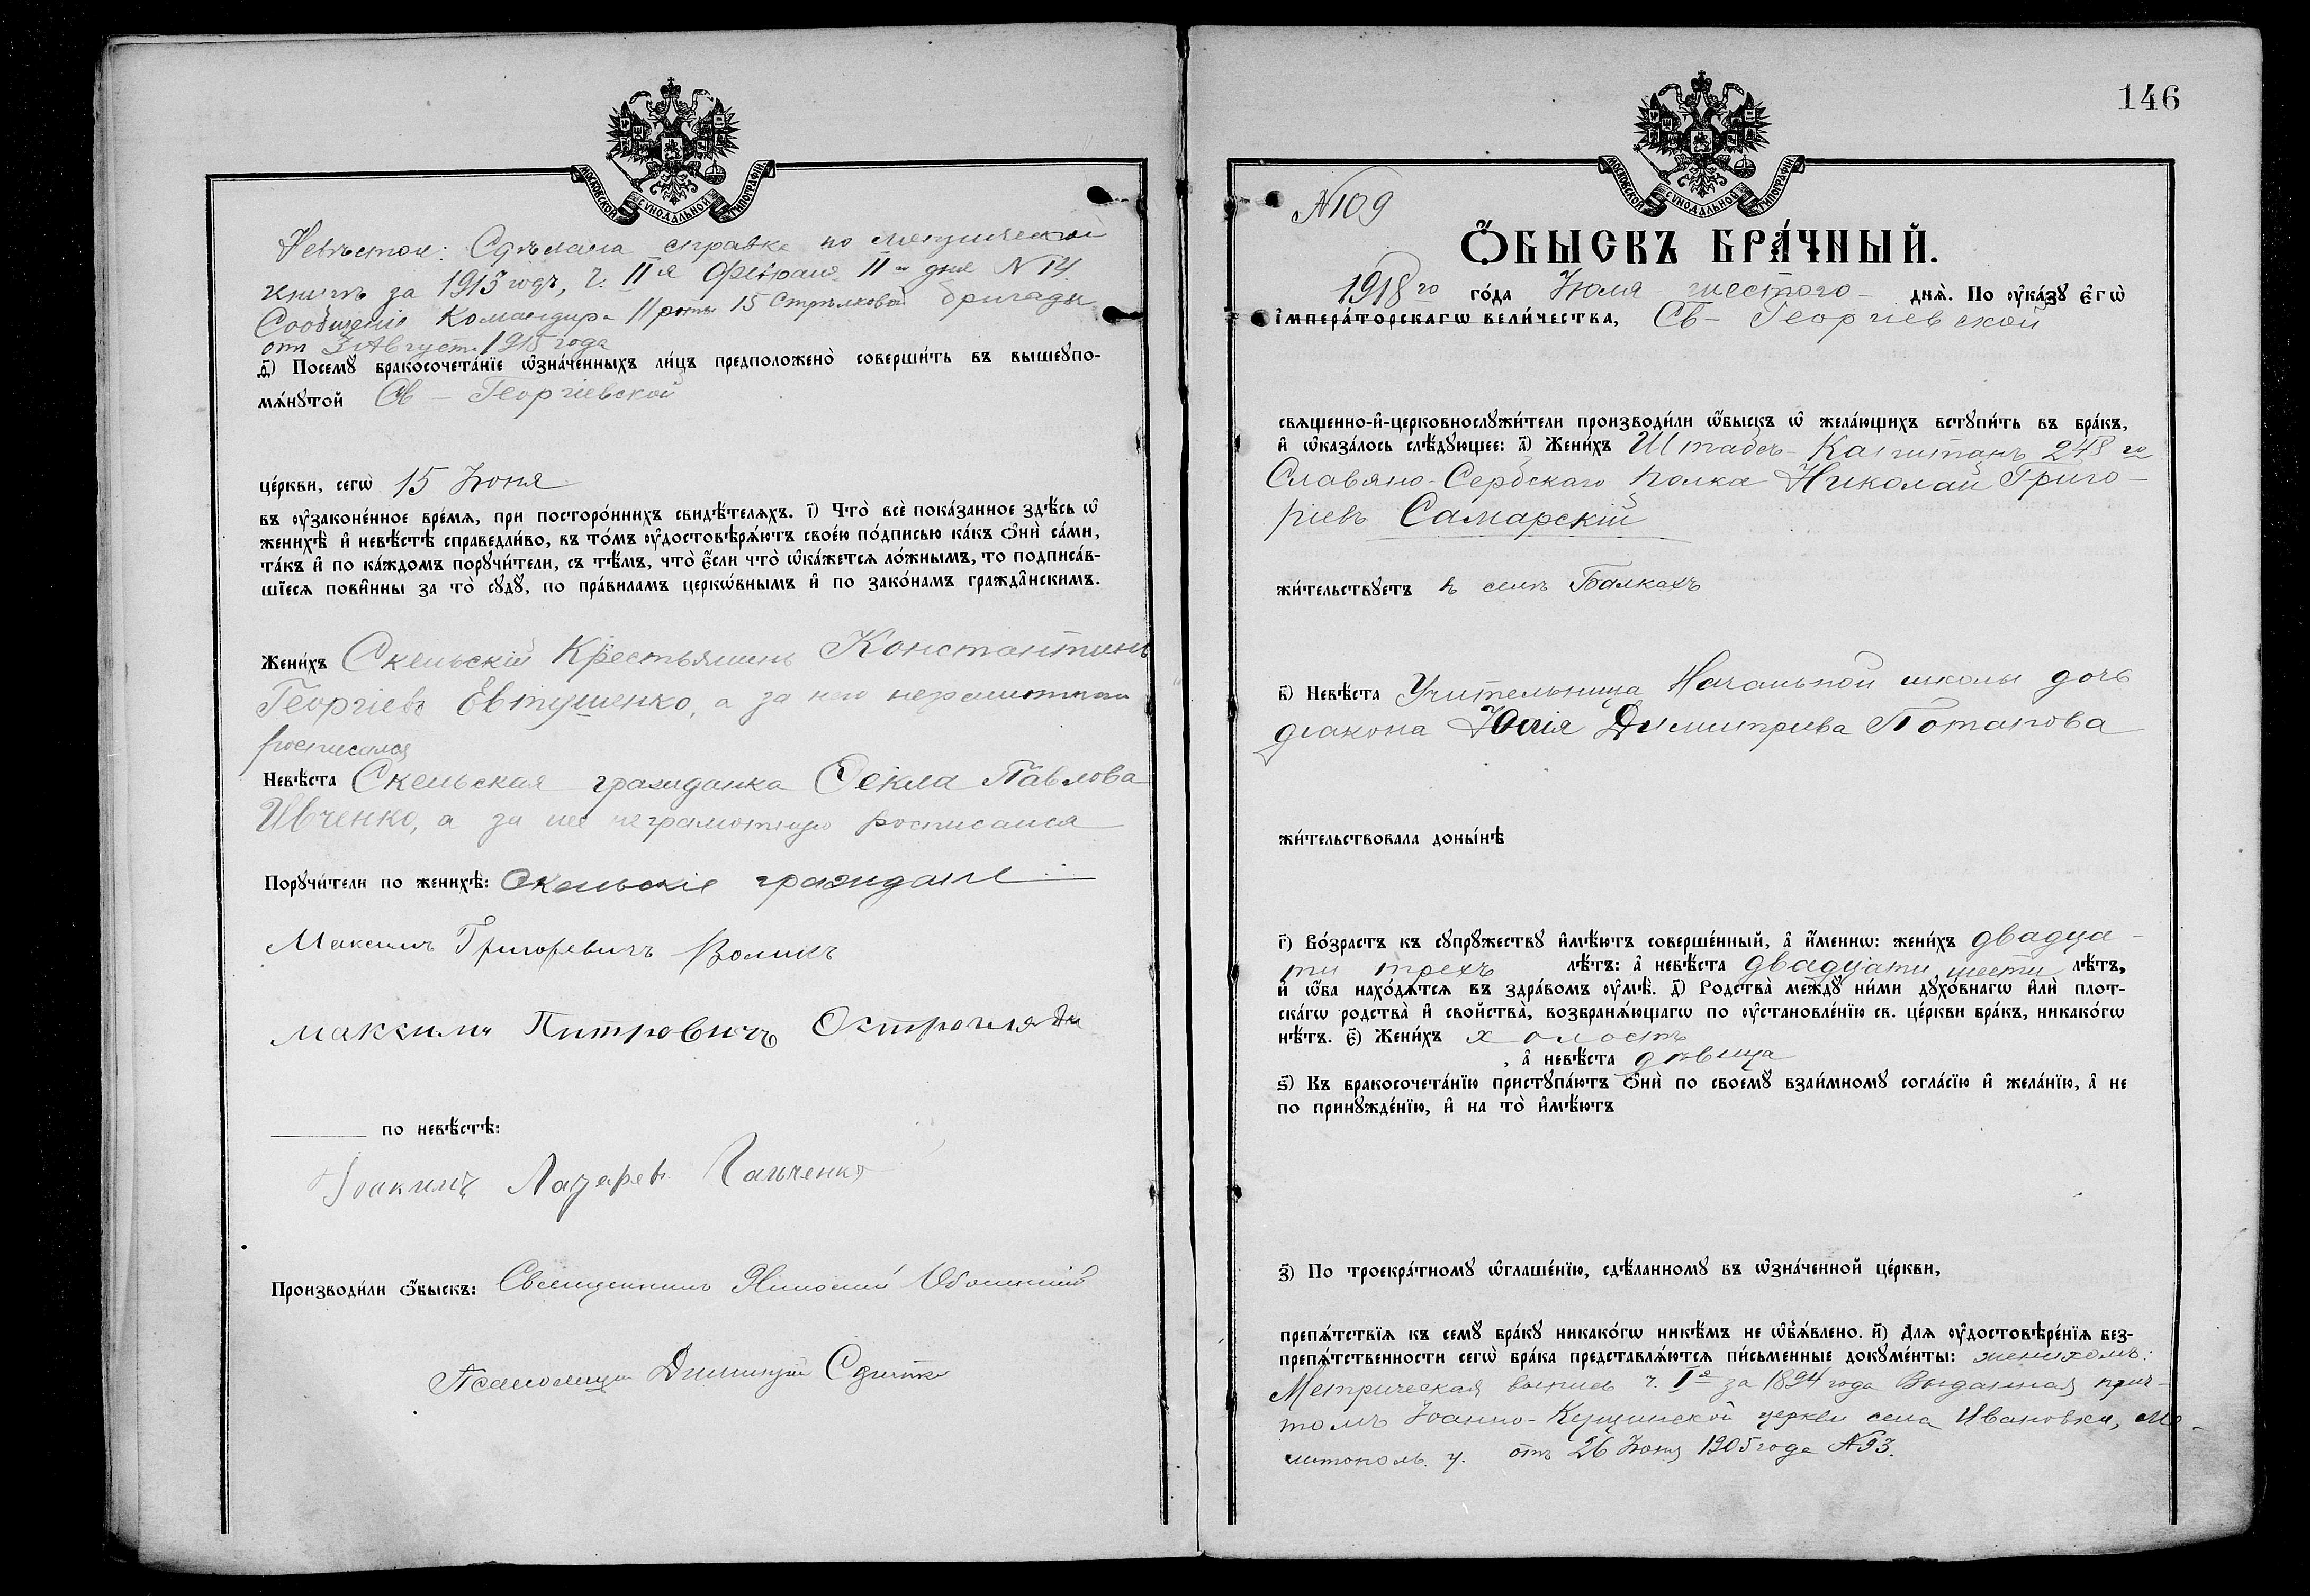 МОСКОВСКОЙ СУНОДАЛЬНОЙ ТИПОГРАФІИ
Невѣстою: Сдѣлана справка по метрической
книгѣ за 1913 годъ, ч. II я 11 дня N 14.
Сообщеніе Командира 11 роты 15 Стрѣлковой бригады
отъ 3 Августа 1918 года
д҃і) Посемꙋ̀ бракосочета́нїе ѡ҆зна́ченныхъ ли́цъ предположено̀ соверши́ть въ вышеꙋпо-
мѧ́нꙋтой Св – Георгіевской
це́ркви, сегѡ̀ 15 Іюня
въ ѹ҆законе́нное вре́мѧ, при посторо́ннихъ свидѣ́телѧхъ. і҃) Что̀ всѐ пока́занное здѣ́сь ѡ҆
женихѣ̀ и҆ невѣ́стѣ справедли́во, въ то́мъ ѹ҆достовѣрѧ́ютъ свое́ю по́дписью ка́къ ѻ҆нѝ са́ми,
та́къ и҆ по ка́ждомъ порꙋчи́тели, съ тѣ́мъ, что̀ є҆́сли что̀ ѡ҆ка́жетсѧ ло́жнымъ, то подписа́в-
шїесѧ пови́нны за то̀ сꙋдꙋ̀, по пра́виламъ церкѡ́внымъ и҆ по зако́намъ гражда́нскимъ.
Жени́хъ Скельскій Крестьянинъ Константинъ
Георгіевъ Евтушенко, а за него неграмотнаго
росписался
Невѣ́ста Скельская гражданка Ѳекла Павлова
Ивченко, а за нее неграмотную росписался
Порꙋчи́тели по женихѣ̀: Скельскіе граждане
Максимъ Григоревичъ Воликъ
Максимъ Питровичъ
по невѣ́стѣ:
Іоакимъ Лазаревъ
Производи́ли ѻ҆́быскъ: Священникъ Николай
Псаломщикъ Димитрій
146
МОСКОВСКОЙ СУНОДАЛЬНОЙ ТИПОГРАФІИ
N 109
Ѻ҆́БЫСКЪ БРА́ЧНЫЙ.
1918 го го́да Іюля шестого днѧ̀. По ѹ҆ка́зꙋ є҆гѡ̀
і҆мпера́торскагѡ вели́чества, Св – Георгіевской
свѧщенно-и҆-церковнослꙋжи́тели производи́ли ѡ҆́быскъ ѡ҆ жела́ющихъ встꙋпи́ть въ бра́къ,
и҆ ѡ҆каза́лось слѣ́дꙋющее: а҃) Жени́хъ Штабсъ-Капитанъ 248 го
Славяно-Сербскаго полка Николай Григо-
ріевъ Самарскій
жи́тельствꙋетъ в селѣ Балкахъ
в҃) Невѣ́ста Учительница Начальной школы дочь
діакона Юлія Димитріева Потапова
жи́тельствовала доны́нѣ
г҃) Во́зрастъ къ сꙋпрꙋ́жествꙋ и҆мѣ́ютъ соверше́нный, а҆ и҆́меннѡ: жени́хъ двадца-
ти трехъ лѣ́тъ: а҆ невѣ́ста двадцати шести лѣ́тъ,
и҆ ѡ҆́ба нахо́дѧтсѧ въ здра́вомъ ѹ҆мѣ̀. д҃) Родства̀ междꙋ̀ ни́ми дꙋхо́внагѡ и҆лѝ плот-
ска́гѡ родства̀ и҆ свойства̀, возбранѧ́ющагѡ по ѹ҆становле́нїю св. це́ркви бра́къ, никако́гѡ
нѣ́тъ. є҃) Жени́хъ холостъ
, а҆ невѣ́ста дѣвица
ѕ҃) Къ бракосочета́нїю пристꙋпа́ютъ ѻ҆нѝ по своемꙋ̀ взаи́мномꙋ согла́сїю и҆ жела́нїю, а҆ не
по принꙋжде́нїю, и҆ на то̀ и҆мѣ́ютъ
з҃) По троекра́тномꙋ ѡ҆глаше́нїю, сдѣ́ланномꙋ въ ѡ҆зна́ченной це́ркви,
препѧ́тствїѧ къ семꙋ̀ бра́кꙋ никако́гѡ никѣ́мъ не ѡ҆б̾ѧ́влено. и҃) Длѧ ѹ҆достовѣре́нїѧ без-
препѧ́тственности сегѡ̀ бра́ка представлѧ́ютсѧ пи́сьменные докꙋме́нты: женихомъ:
Метрическая выпись ч. I я за 1894 года Выданная прич-
томъ Іоанно- церкви села Ивановки, Ме-
литополь. у. отъ 26 Іюня 1905 года N 93.